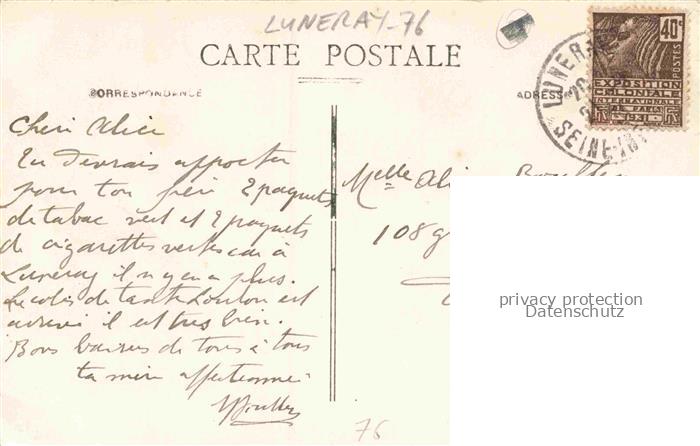 LUNERAY-76
CARTE POSTALE
CORRESPONDENCE
ADRESSE
40c
POSTES
EXPOSITION
COLONIALE
INTERNATIONALE
DE PARIS
1931
LUNERAY
SEINE-INF
Cheri Alice
Tu devrais apporter
pour ton père 2 paquets
de tabac vert et 2 paquets
de cigarettes vertes car à
Luneray il n'y en a plus.
Le colis de tante Loulou est
arrivé il est très bien.
Bons baisers de tous à tous
ta mère affectionnée
Melle
108
privacy protection
Datenschutz
76